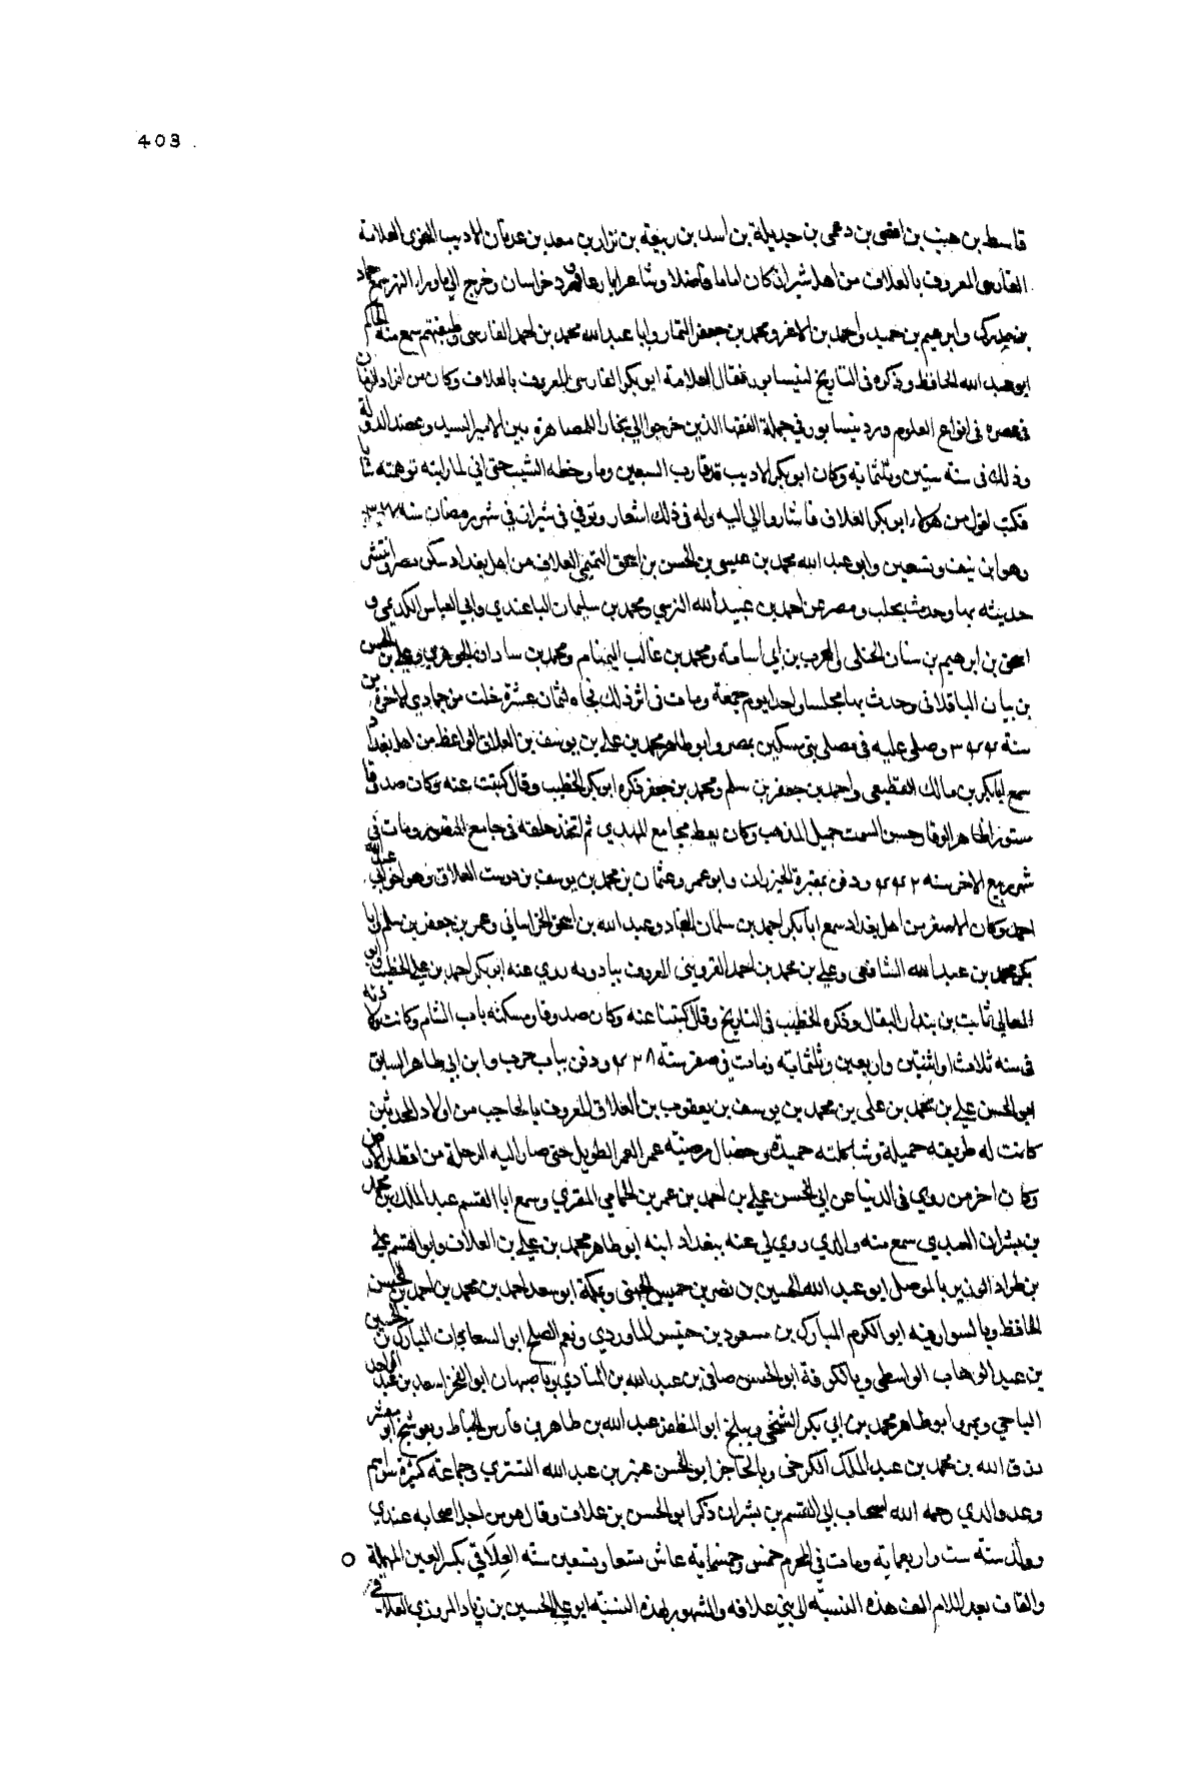 403
قاسط بن هنب بن افصى بن دعمي بن جديلة بن اسد بن ربيعة بن نزار بن معد بن عدنان الاديب اللغوي العلامة
الفارسي المعروف بالعلاف من اهل شيراز كان اماما فاضلا وشاعرا بارعا ورد خراسان وخرج الى ماوراء النهر سمع حماد
بن مدرك وابرهيم بن حميد واحمد بن الاغر ومحمد بن جعفر التمار وابا عبد الله محمد بن احمد الفارسي وطبقتهم سمع منه الحاكم
ابو عبد الله الحافظ وذكره في التاريخ لنيسابور فقال العلامة ابو بكر الفارسي المعروف بالعلاف وكان من افراد الزمان
في عصره في انواع العلوم ورد نيسابور في جملة الفقها الذين خرجوا الى بخارا للمصاهرة بين الامير السيد وعضد الدولة
وذلك في سنة ستين وثلثماية وكان ابو بكر الاديب قد قارب السبعين وما وخطه الشيب حتى اني لما رايته توهمته شابا
فكنت اقول من هو ابو بكر العلاف فاشاروا الي اليه وله في ذلك اشعار وتوفي في شيراز في شهر رمضان سنة ٣٧٧
وهو ابن نيف وتسعين وابو عبد الله محمد بن عيسى بن الحسن بن اسحق التميمي العلاف من اهل بغداد سكن مصر وانتشر
حديثه بها وحدث بحلب ومصر عن احمد بن عبيد الله النرسي ومحمد بن سليمان الباغندي وابي العباس الكديمي و
اسحق بن ابرهيم بن سنان الختلي والحرب بن ابي اسامة ومحمد بن غالب التمتام ومحمد بن شاذان الجوهري وعلي بن الحسن
بن بيان الباقلاني وحدث بها مجلسا واحدا يوم جمعة ومات في اثر ذلك فجاه لثمان عشرة خلت من جمادي الاخرة من
سنة ٣٤٤ وصلى عليه في مصلى بني مسكين بمصر وابو طاهر محمد بن علي بن يوسف بن العلاف الواعظ من اهل بغداد
سمع ابا بكر بن مالك القطيعي واحمد بن جعفر بن سلم ومحمد بن جعفر ذكره ابو بكر الخطيب وقال كتبت عنه وكان صدوقا
مستورا ظاهر الوقار حسن السمت جميل المذهب وكان يعظ بجامع المهدي ثم اتخذ حلقه في جامع المنصور ومات في
شهر ربيع الاخر سنه ٤٤٢ ودفن بمقبرة الخيزران وابو عمرو عثمان بن محمد بن يوسف بن دوست العلاف وهو اخو ابي عبد الله
احمد وكان الاصغر من اهل بغداد سمع ابا بكر احمد بن سلمان النجاد وعبد الله بن اسحق الخراساني وعمر بن جعفر بن سلم وابا
بكر محمد بن عبد الله الشافعي وعلي بن محمد بن احمد القزويني المعروف ببادويه روي عنه ابو بكر احمد بن علي الخطيب وابو
المعالي ثابت بن بندار البقال وذكره الخطيب في التاريخ وقال كتبنا عنه وكان صدوقا ومسكنه باب الشام وكانت ولادته
في سنه ثلاث او اثنتين واربعين وثلثماية ومات في صفر سنة ٤٢٨ ودفن بباب حرب وابن ابي طاهر السابق
ابو الحسن علي بن محمد بن علي بن محمد بن يوسف بن يعقوب بن العلاف المعروف بالحاجب من اولاد المحدثين
كانت له طريقه جميلة وشاكلته حميدة وخصال مرضيته عمر العمر الطويل حتى صار اليه الرحلة من اقطار الارض
وكان اخر من روي في الدنيا عن ابي الحسن علي بن احمد بن عمر بن الحمامي المقري وسمع ابا القسم عبد الملك بن محمد
بن بشران العبدي سمع منه والدي روي لي عنه ببغداد ابنه ابو طاهر محمد بن علي بن العلاف وابو القسم علي
بن طراد الوزير وبالموصل ابو عبد الله الحسين بن نصر بن خميس الجهني وبمكة ابو سعد احمد بن محمد بن احمد بن الحسن
الحافظ وبالسوارقيه ابو الكرم المبارك بن مسعود بن خميس الماوردي وبفم الصلح ابو السعادات المبارك بن الحسين
بن عبد الوهاب الواسطي وبالكوفة ابو الحسن صافي بن عبد الله بن المنادي وباصبهان ابو الفخر اسعد بن عبد الواحد
الباجي وبمرو ابو طاهر محمد بن ابي بكر الشيحي وببلخ ابو المظفر عبد الله بن طاهر بن فارس الخياط وببوشنج ابو معشر
رزق الله بن محمد بن عبد الملك الكرخي وبالحاجز ابو الحسن عنبر بن عبد الله الستري وجماعة كثيرة سواهم
وعد والدي رحمه الله اصحاب ابي القسم بن بشران ذكر ابو الحسن بن علاف وقال هو من اجل اصحابه عندي
وولد سنة ست واربعماية ومات في المحرم خمس وخمسماية عاش تسعا وتسعين سنه العِلاقي بكسر العين المهملة
والقاف بعد اللام الف هذه النسبة الى بني علاقه والمشهور بهذه النسبة ابو علي الحسين بن زياد المروزي العلاقي